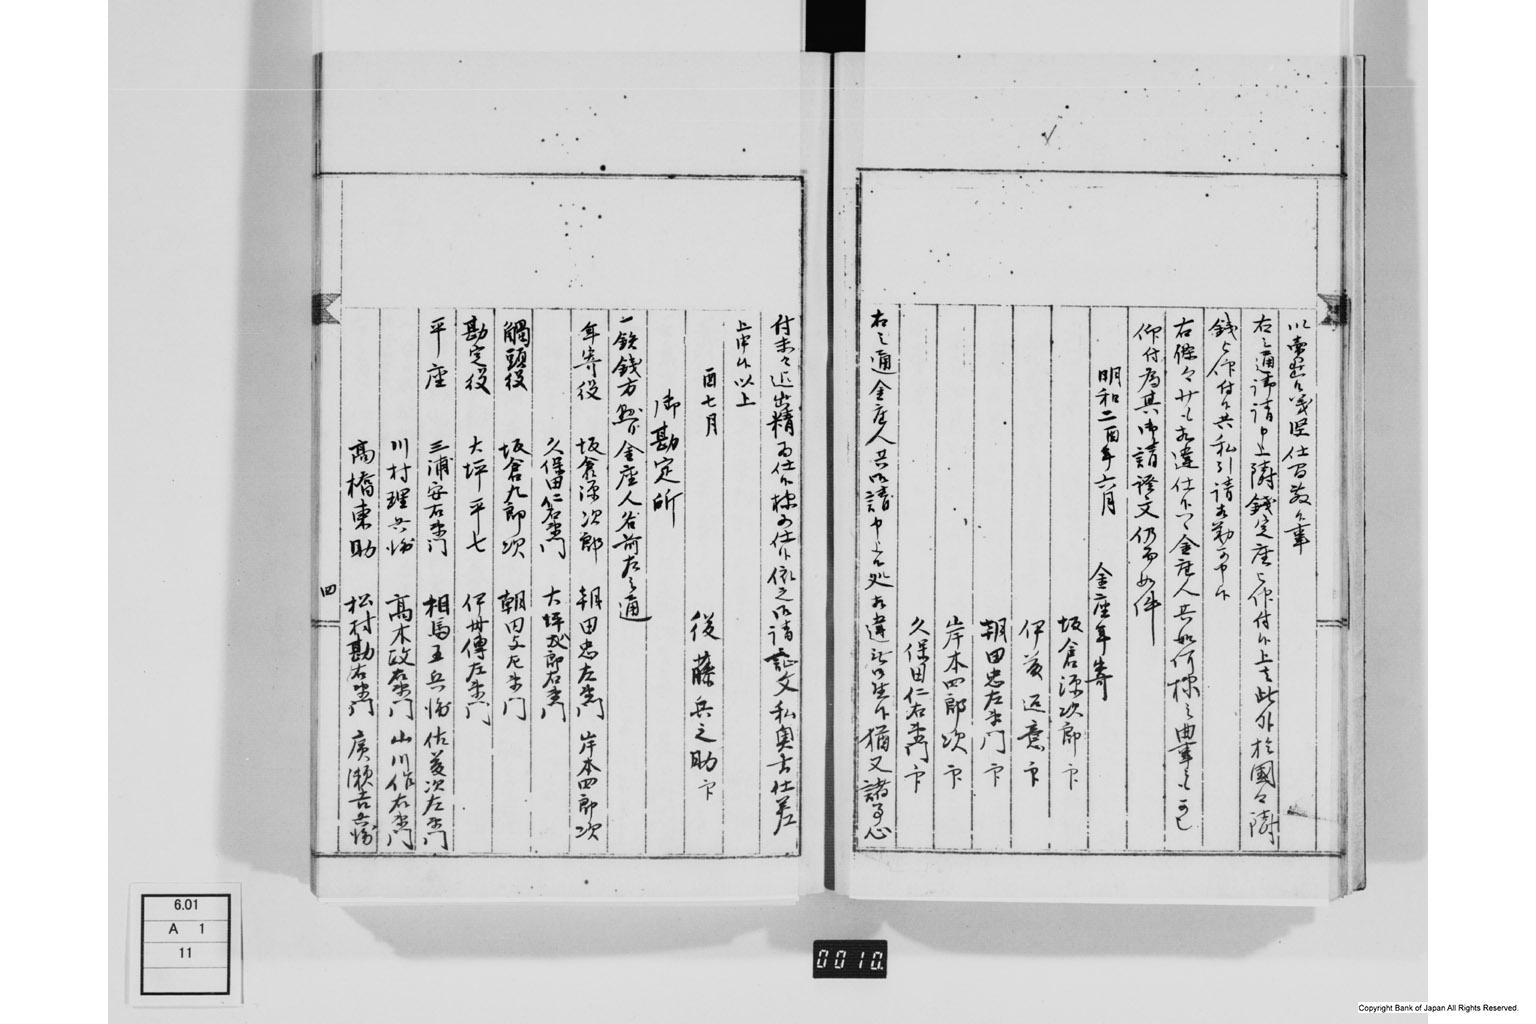 右之通御請申上鋳銭定座被仰付候上者此外於國々鋳
銭被仰付候共私引請相勤可申候
右條々少も相違仕候ハヽ金座人共如何様之曲事ニも可被
仰付為其御請證文仍而如件
明和二酉年六月
金座年寄
坂倉源次郎 印
伊 返意 印
朝田忠左衛門 印
岸本四郎次 印
久保田仁右衛門 印
右之通金座人共御請申上候処相違無御座候猶又諸事心
付末々迄出精為仕候様可仕候依之御請証文私奥書仕差
上申候以上
酉七月
後藤兵之助 印
御勘定所
一鉄銭方懸り金座人名前左之通
年寄役 坂倉源次郎 朝田忠左衛門 岸本四郎次
久保田仁右衛門 大坪 郎右衛門
觸頭役 坂倉九郎次 朝田 左衛門
勘定役 大坪平七 伊 傳左衛門
平座 三浦安右衛門 相馬五兵衛 佐 次左衛門
川村理兵衛 高木政右衛門 山川作右衛門
高橋東助 松村勘右衛門 廣瀬吉兵衛
四
6.01
A 1
11
0010
Copyright Bank of Japan All Rights Reserved.